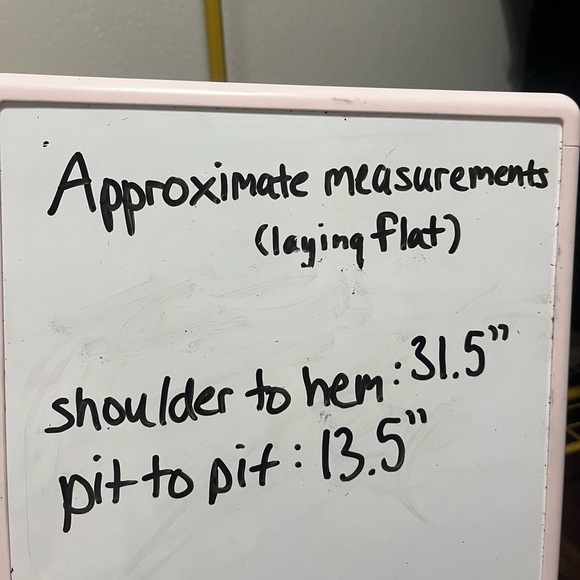 Approximate measurements
(laying flat)
shoulder to hem: 31.5"
pit to pit: 13.5"